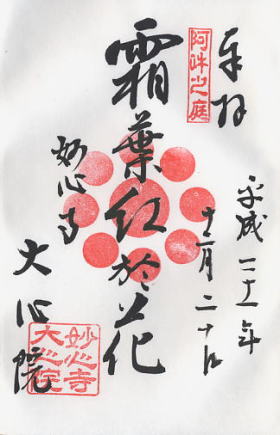 奉拝
平成二十一年
十一月二十日
阿吽之庭
霜葉紅於花
妙心寺
大心院
妙心寺
大心院